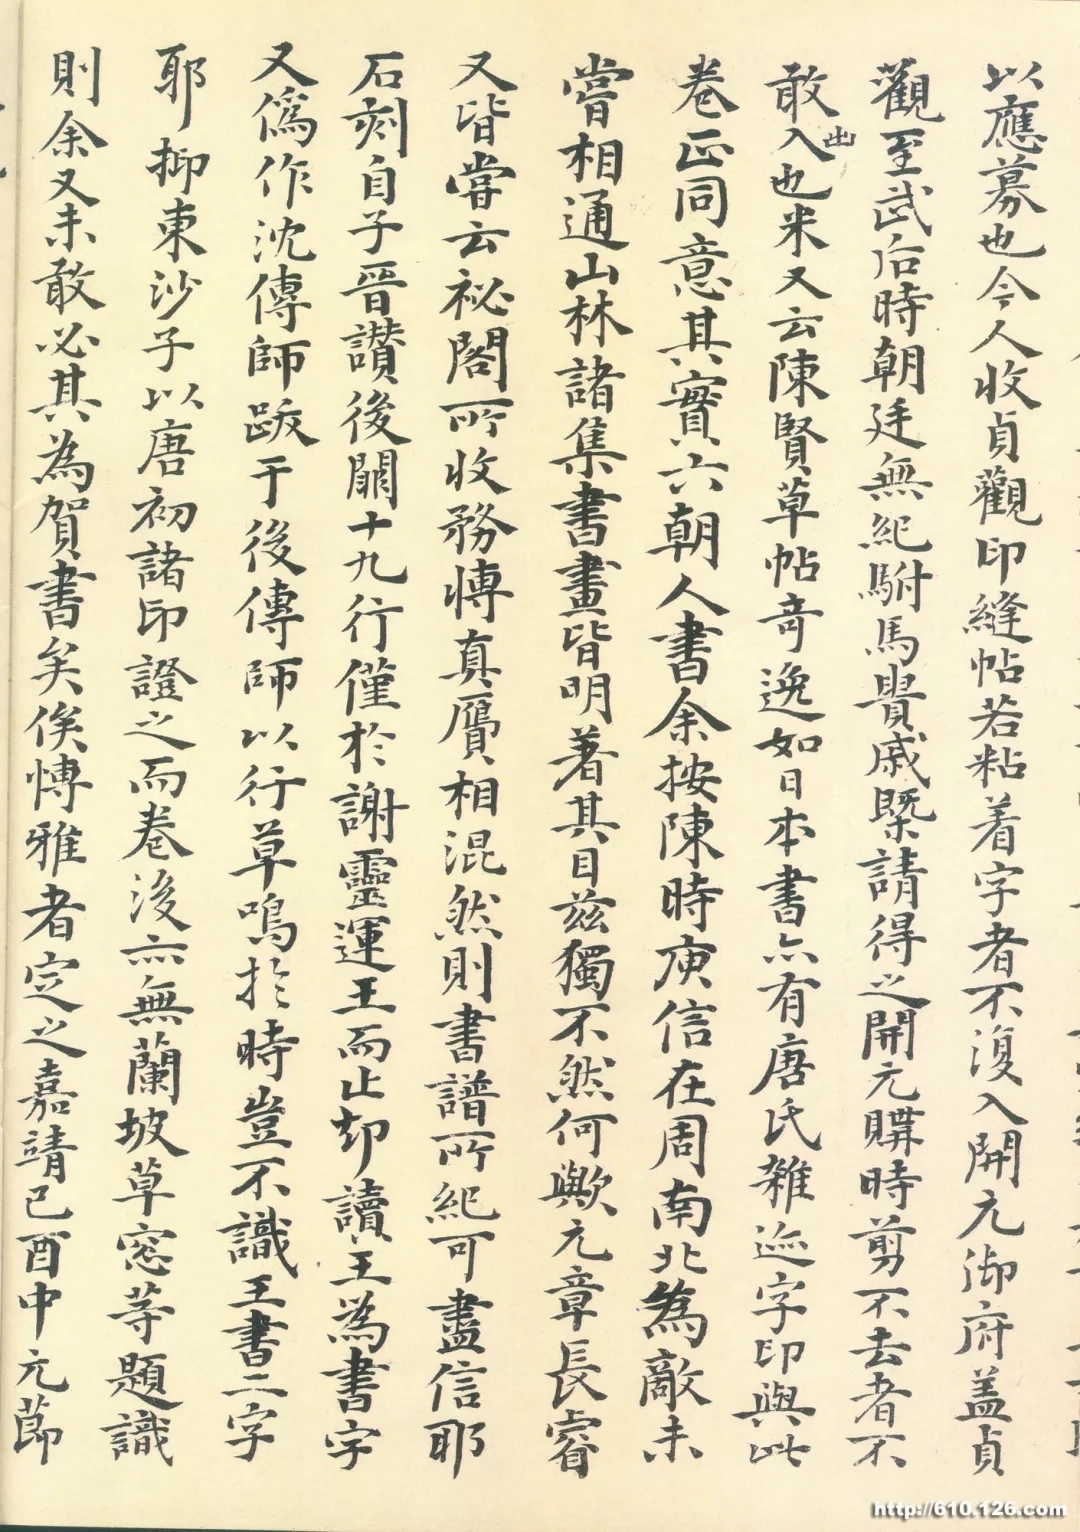 以應募也今人收貞觀印縫帖若粘着字者不復入開元御府蓋貞
觀至武后時朝廷無紀駙馬貴戚槩請得之開元購時剪不去者不
敢入出也米又云陳賢草帖竒逸如日本書亦有唐氏雜迹字印與此
卷正同意其實六朝人書余按陳時庾信在周南北為敵未
嘗相通山林諸集書畫皆明著其目茲獨不然何歟元章長睿
又皆嘗云祕閣所收務博真贗相混然則書譜所紀可盡信耶
石刻自子晉讃後闕十九行僅於謝靈運王而止却讀王為書字
又偽作沈傳師跋于後傳師以行草鳴於時豈不識王書二字
耶抑東沙子以唐初諸印證之而卷後亦無蘭坡草窓等題識
則余又未敢必其為賀書矣俟博雅者定之嘉靖己酉中元節
http://610.126.com